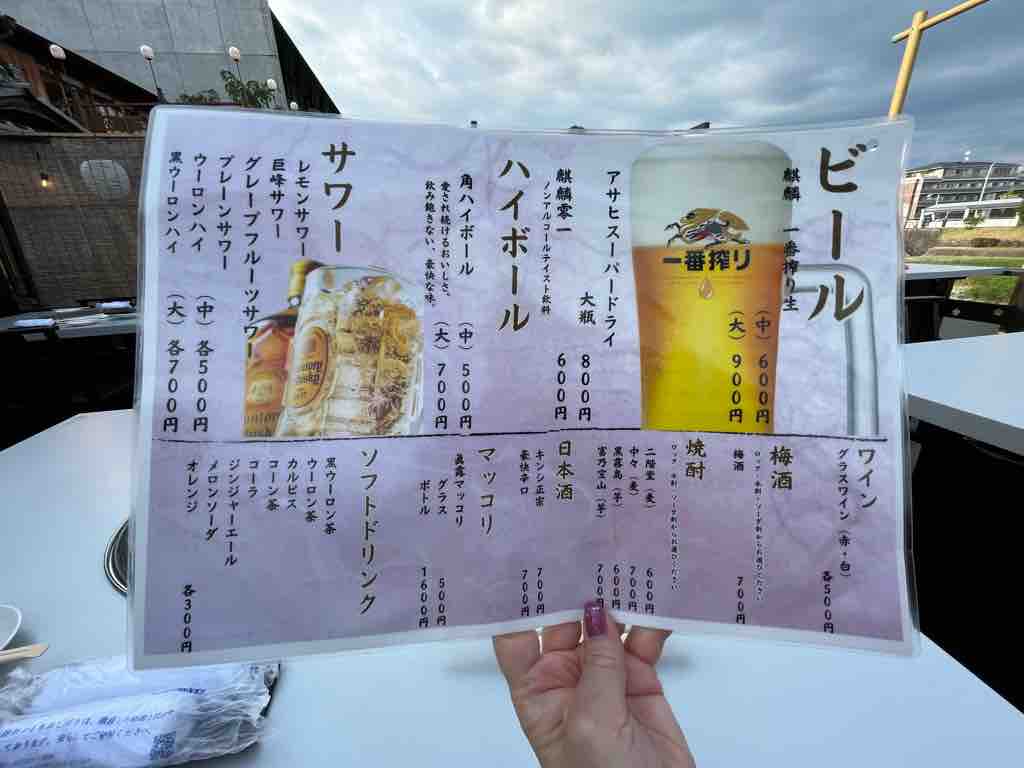 ビール
麒麟 一番搾り生
(中) 600円
(大) 900円
一番搾り
アサヒスーパードライ
大瓶 800円
麒麟零一 600円
ノンアルコールテイスト飲料
ハイボール
角ハイボール (中) 500円
(大) 700円
愛され続けるおいしさ。
飲み飽きない、豪快な味。
サワー
レモンサワー
巨峰サワー
グレープフルーツサワー
プレーンサワー
ウーロンハイ
黒ウーロンハイ
(中) 各500円
(大) 各700円
ワイン
グラスワイン (赤・白) 各500円
梅酒
ロック・水割・ソーダ割からお選びください
梅酒 700円
焼酎
ロック・水割・ソーダ割からお選びください
二階堂 (麦) 600円
中々 (麦) 700円
黒霧島 (芋) 600円
富乃宝山 (芋) 700円
日本酒
キンシ正宗 700円
豪快辛口 700円
マッコリ
眞露マッコリ
グラス 500円
ボトル 1600円
ソフトドリンク
黒ウーロン茶
ウーロン茶
カルピス
コーン茶
コーラ
ジンジャーエール
メロンソーダ
オレンジ
各300円